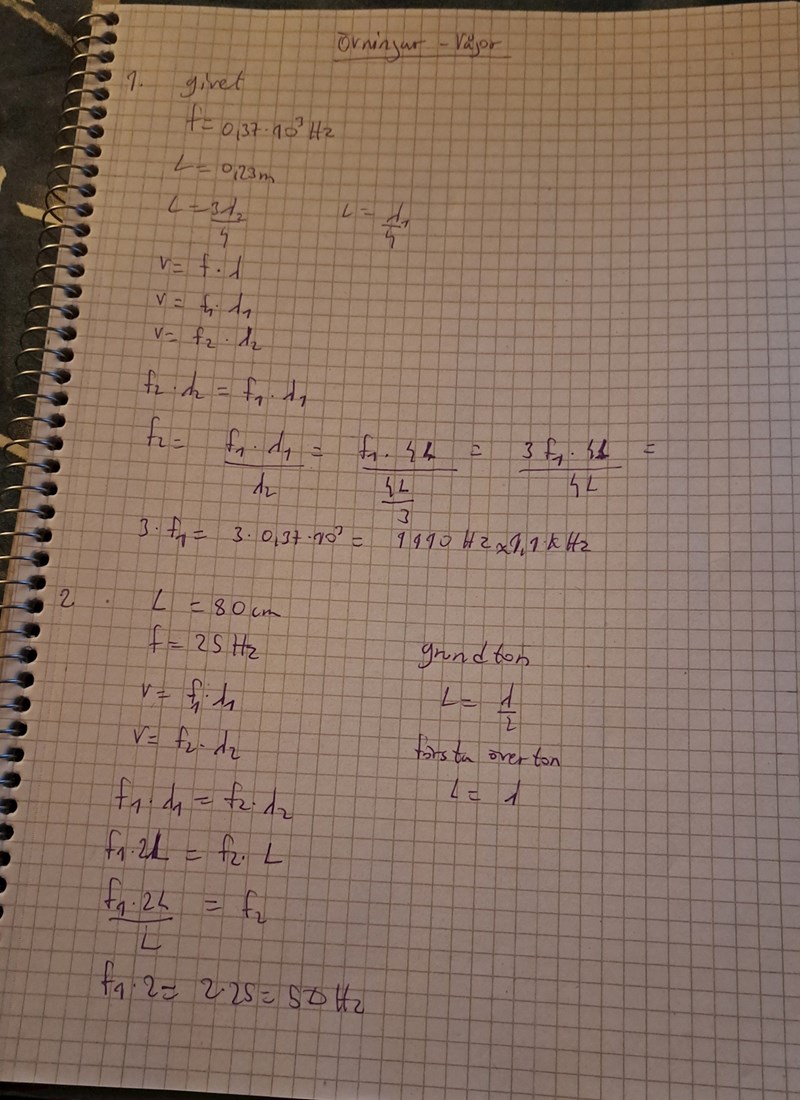 Övningar - Vågor
1. givet
f = 0,37·10³ Hz
L = 0,23m
L = 3λ₂/4 L = λ₁/4
v = f·λ
v = f₁·λ₁
v = f₂·λ₂
f₂·λ₂ = f₁·λ₁
f₂ = f₁·λ₁/λ₂ = f₁·4L/(4L/3) = 3f₁·4L/4L =
3·f₁ = 3·0,37·10³ = 1110 Hz ≈ 1,1 kHz
2. L = 80cm
f = 25 Hz
grundton
v = f₁·λ₁ L = λ/2
v = f₂·λ₂ första överton
f₁·λ₁ = f₂·λ₂ L = λ
f₁·2L = f₂·L
f₁·2L/L = f₂
f₁·2 = 2·25 = 50 Hz